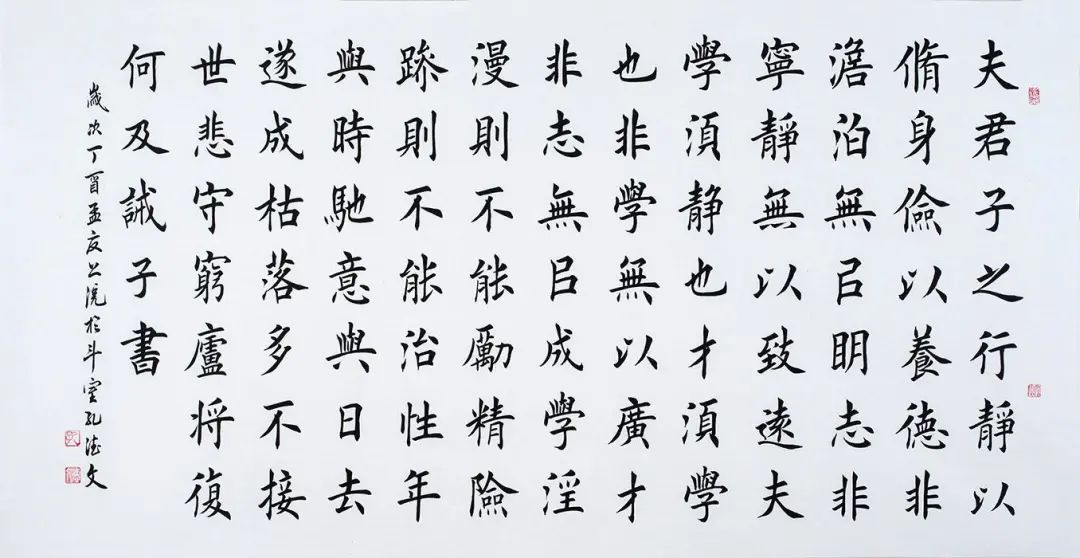 夫君子之行靜以
脩身儉以養德非
澹泊無㠯眀志非
寧靜無以致遠夫
學湏静也才湏學
也非學無以廣才
非志無㠯成學淫
漫則不能勵精險
躁則不能治性年
與時馳意與日去
遂成枯落多不接
世悲守窮廬将復
何及誡子書
歲次丁酉孟夏上浣於斗室孔德文